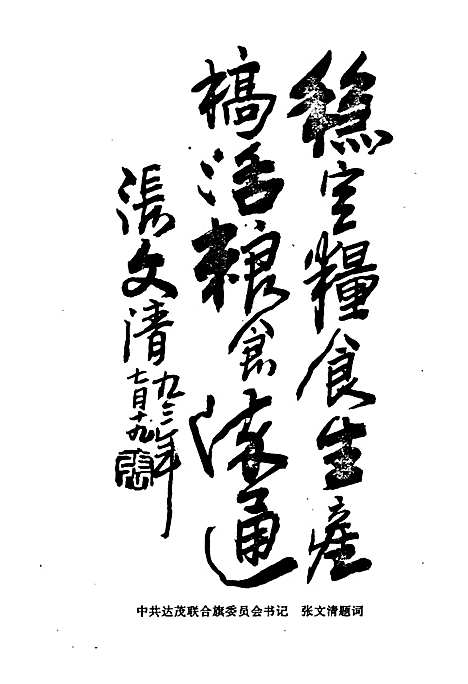 稳定糧食生産
搞活粮食流通
張文清
九三年
七月十九
中共达茂联合旗委员会书记　张文清题词